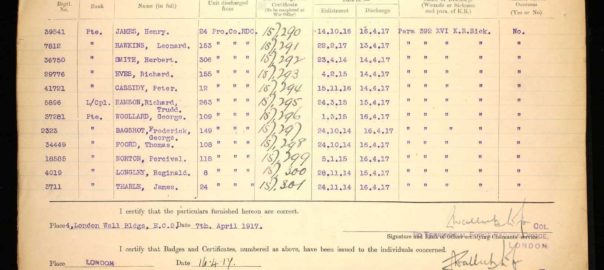 Regtl. No. Rank Name (in full) Unit discharged from Certificate (To be completed at War Office) Enlistment Discharge (Wounds or Sickness and para. of K.R.) Overseas (Yes or No)
39541 Pte. JAMES, Henry. 24 Pro.Co.RDC. 15/290 -14.10.16 16.4.17 Para 392 XVI K.R.Sick. No.
7812 " HAWKINS, Leonard. 153 " " 15/291 22.2.17 13.4.17 " " " " "
36750 " SMITH, Herbert. 306 " " 15/292 23.4.14 14.4.17 " " " " "
29776 " RVES, Richard. 155 " " 15/293 4.2.15 14.4.17 " " " " "
41721 " CASSIDY, Peter. 12 " " 15/294 15.11.16 14.4.17 " " " " "
5896 L/Cpl. RANSON, Richard, Trudd. 263 " " 15/295 24.3.15 15.4.17 " " " " "
37281 Pte. WOOLLARD, George. 109 " " 15/296 1.3.15 16.4.17 " " " " "
2323 " BAGSHOT, Frederick, George. 149 " " 15/297 24.10.14 16.4.17 " " " " "
34449 " FOORD, Thomas. 108 " " 15/298 24.11.14 16.4.17 " " " " "
18585 " NORTON, Percival. 118 " " 15/299 5.1.15 16.4.17 " " " " "
4019 " LONGLEY, Reginald. 8 " " 15/300 21.11.14 16.4.17 " " " " "
3711 " THARLE, James. 24 " " 15/301 24.11.14 16.4.17 " " " " "
I certify that the particulars furnished hereon are correct.
Place 4, London Wall Bldgs, E.C.2, Date 7th. April 1917.
Col
Signature and Rank of Officer certifying Claimants' Services.
LONDON.
I certify that Badges and Certificates, numbered as above, have been issued to the individuals concerned.
Place LONDON Date 16.4.17.